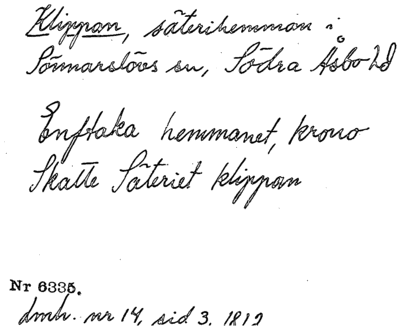 Klippan, säterihemman i
Sönnarslövs sn, Södra Åsbo hd
Enftaka hemmanet, krono
Skatte Säteriet klippan
Nr 6335.
dmh. nr 14, sid 3. 1812